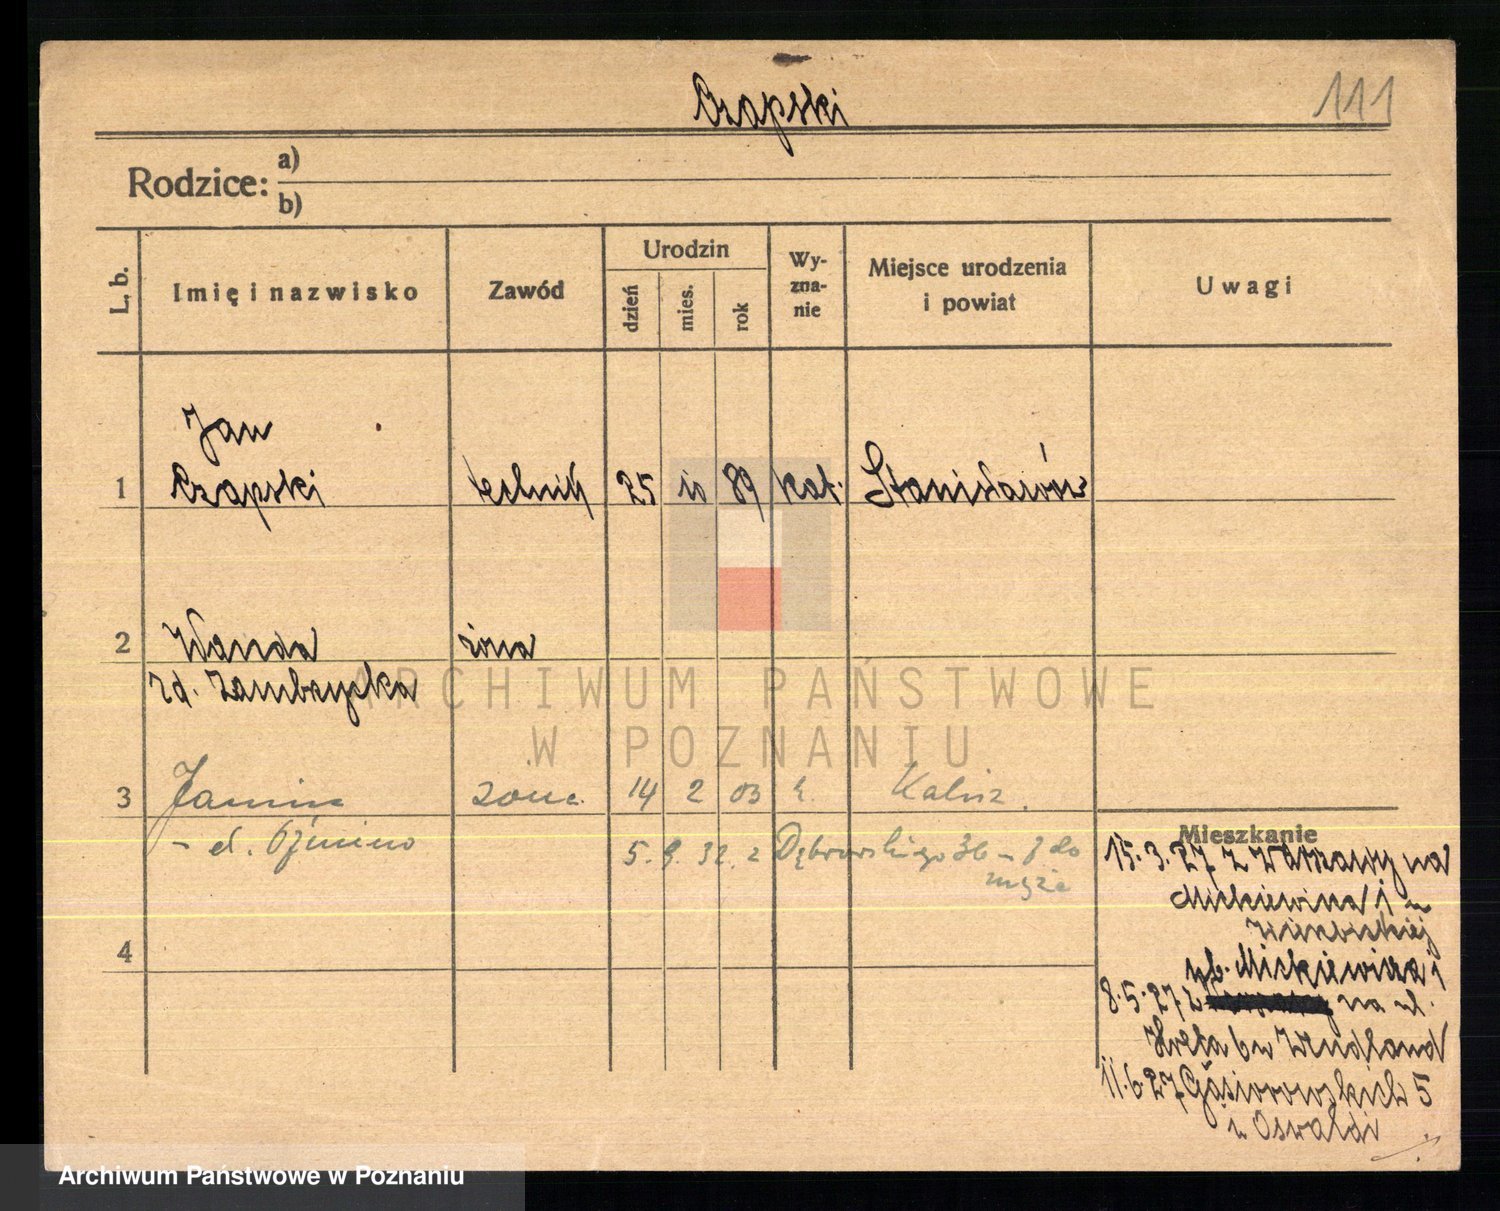 Czapski
111
Rodzice: a)
b)
L. b.
Imię i nazwisko
Zawód
Urodzin
dzień
mies.
rok
Wy-
zna-
nie
Miejsce urodzenia
i powiat
Uwagi
Jan
1 Czapski technik 25 10 89 kat. Stanisławów
2 Wanda żona
zd. Zambrzycka
ARCHIWUM PAŃSTWOWE
W POZNANIU
3 Janina żona 14 2 03 k Kalisz.
5. 9. 32. z Dąbrowskiego 36 - 7 do
męża
4
Mieszkanie
15.3.27 z Warszawy na
Mickiewicza 1 u
Wierzbickiej
Mickiewicza 1
8.5.27 z na ul.
6 u Wendland
11.6.27 Gąsiorowskich 5
u Oswaldi
Archiwum Państwowe w Poznaniu